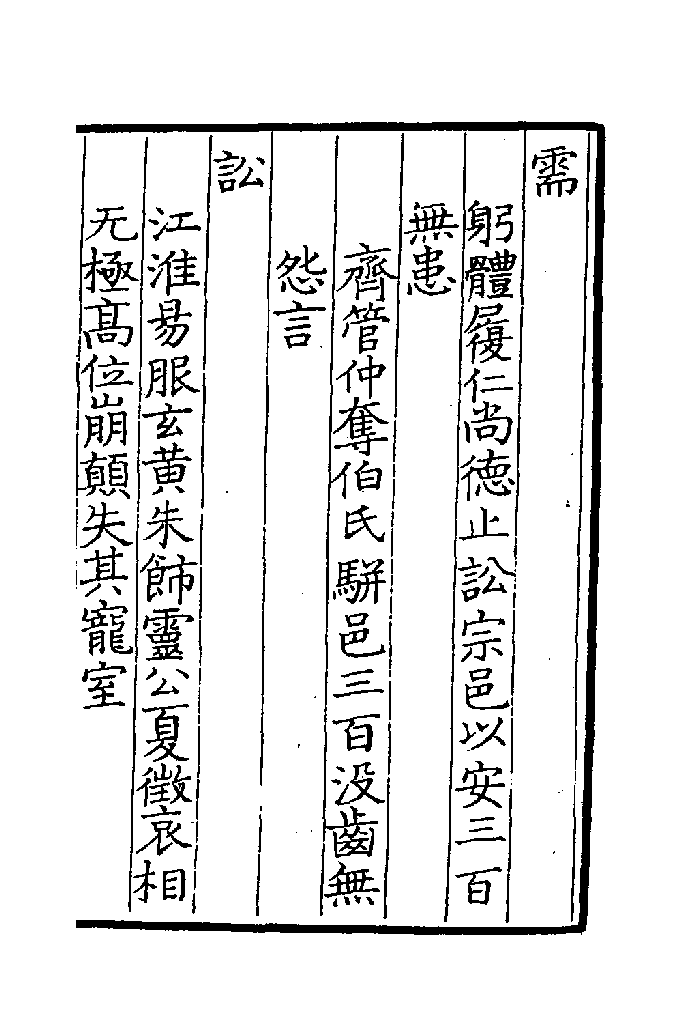 需
躬體履仁尚德止訟宗邑以安三百
無患
齊管仲奪伯氏駢邑三百沒齒無
怨言
訟
江淮易服玄黃朱飾靈公夏徵哀相
无極高位崩顛失其寵室